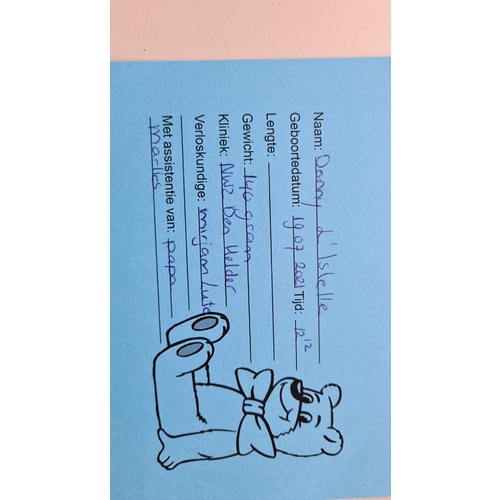 Naam: Donny d'Istelle
Geboortedatum: 19.07 2021 Tijd: 12¹²
Lengte:
Gewicht: 140 gram
Kliniek: NWZ Den Helder
Verloskundige: mirjam
Met assistentie van: papa
marlies
H